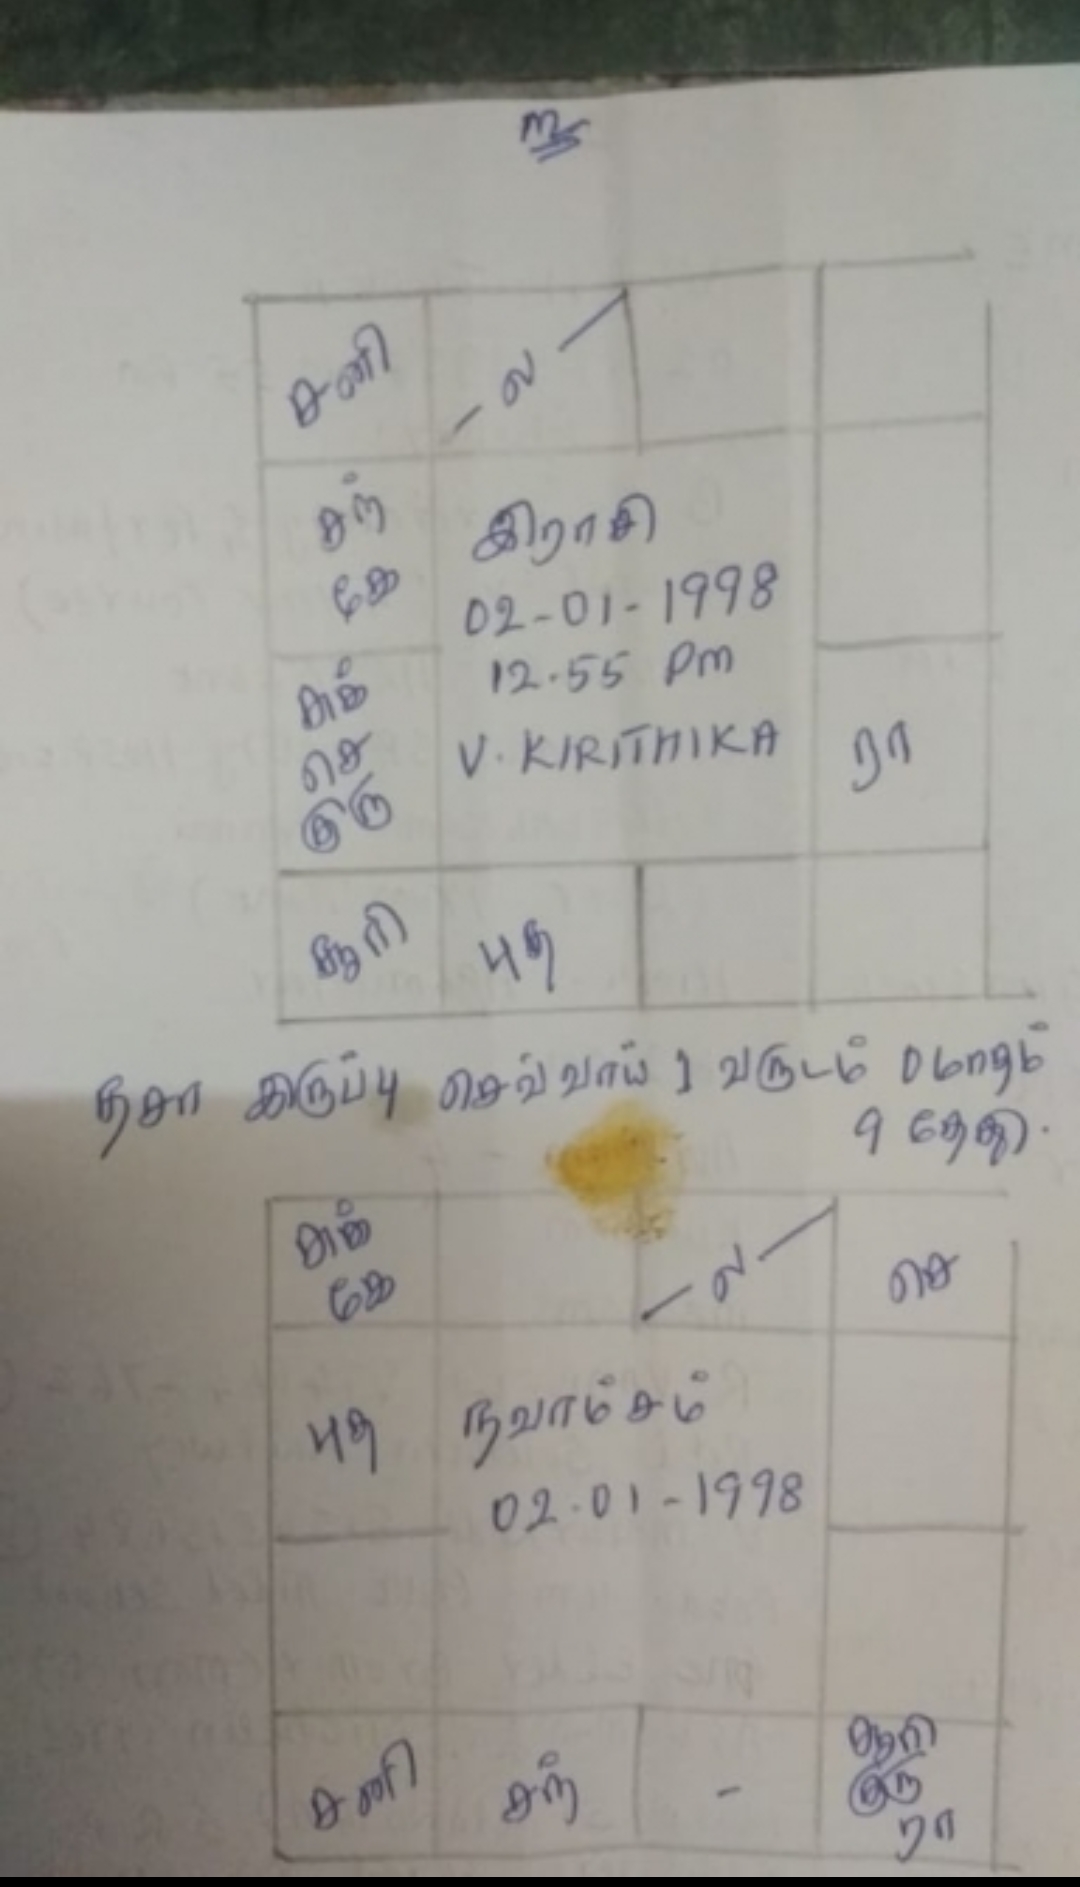 உ
சனி
ல
சந்
கே
இராசி
02-01-1998
12.55 Pm
V. KIRITHIKA
சுக்
செ
குரு
ரா
சூரி
புத
தசா இருப்பு செவ்வாய் 1 வருடம் 0 மாதம்
9 தேதி.
சுக்
கே
ல
செ
புத
நவாம்சம்
02.01-1998
சனி
சந்
-
சூரி
குரு
ரா